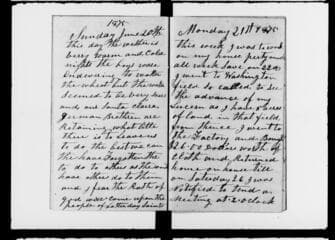 1875
Sunday June 20th
this day the wether is
verry warm and Cold
nights the boys ware
Endevering to water
the wheat but the water
Seemed to be verry low
and our Santa Clara
German Brethren are
Retaining what little
there is to learn us
to do the best we can
the have Forgotten the
to do to other as the would
have other do to them
and I fear the Rath of
god will come upon the
people of Latterday Saint
Monday 21st 1875
this week I was to work
on my home property
all week Save on
I went to Washington
field so called to see
the advance of my
Lucern as I have 6 acres
of land in that field
from thence I went to
the Factory and
26.00 Dollars worth of
Cloth and Returned
home on house till
on Saturday 26 I was
Notified to tend on
Meeting at 2 oclock